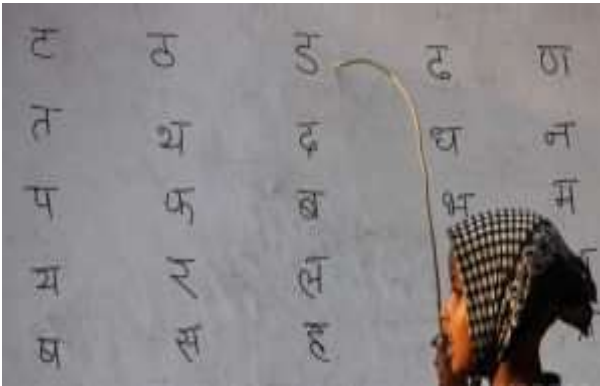 ट ठ ड ढ ण
त थ द ध न
प फ ब भ म
य ल
ष स ह